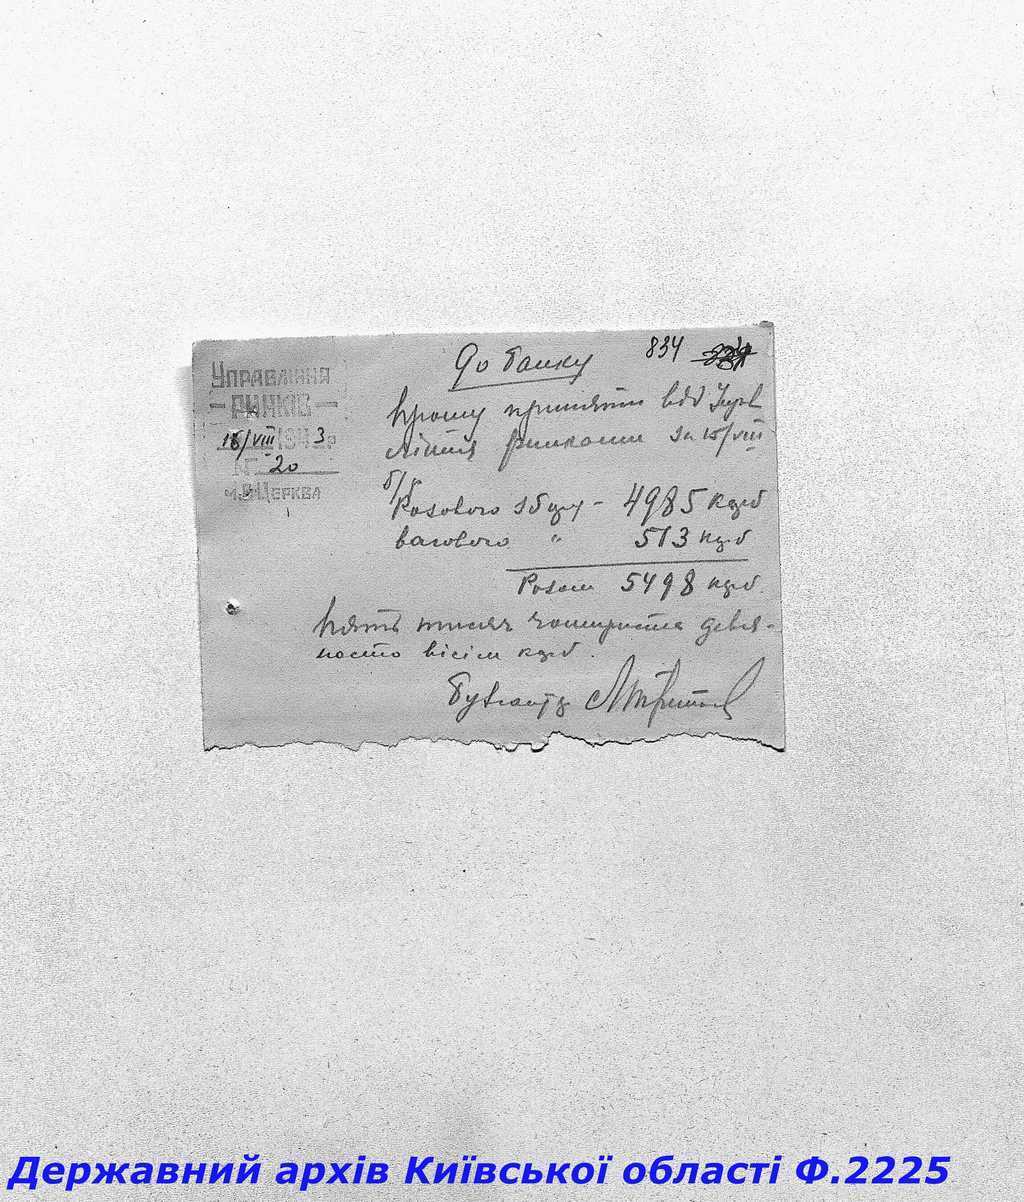 Управління
— Ринків —
16/VIII 1943 р
№ 20
м. Б. Церква
До банку
834
Прошу прийняти від Управ
ління ринками за 15/VIII
б/р
Разового збору – 4985 крб
вагового " 513 крб
Разом 5498 крб.
Пять тисяч чотириста девя-
носто вісім крб.
Бухгалтер
Державний архів Київської області Ф.2225